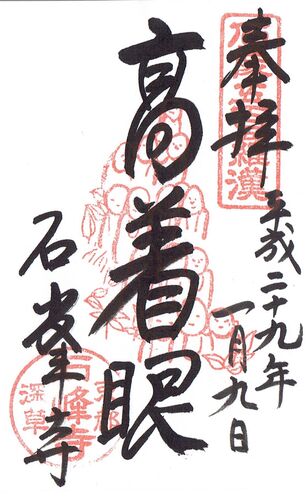 奉拝
平成二十九年
一月九日
高着眼
石峯寺
石峰寺
深草